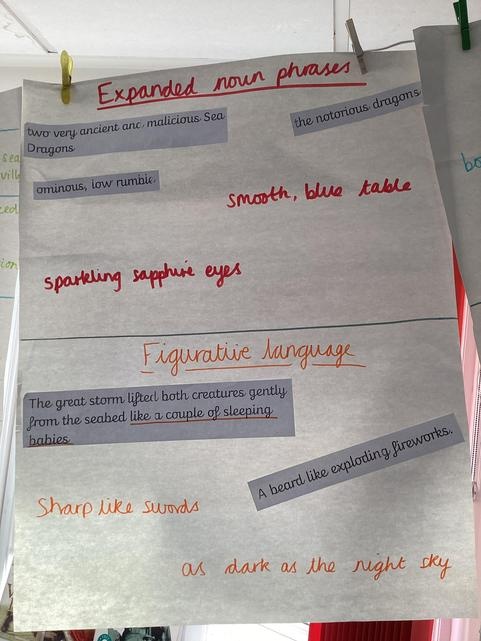 Expanded noun phrases
two very ancient and malicious Sea
Dragons
the notorious dragons
ominous, low rumble
smooth, blue table
sparkling sapphire eyes
Figurative language
The great storm lifted both creatures gently
from the seabed like a couple of sleeping
babies
A beard like exploding fireworks.
Sharp like swords
as dark as the night sky